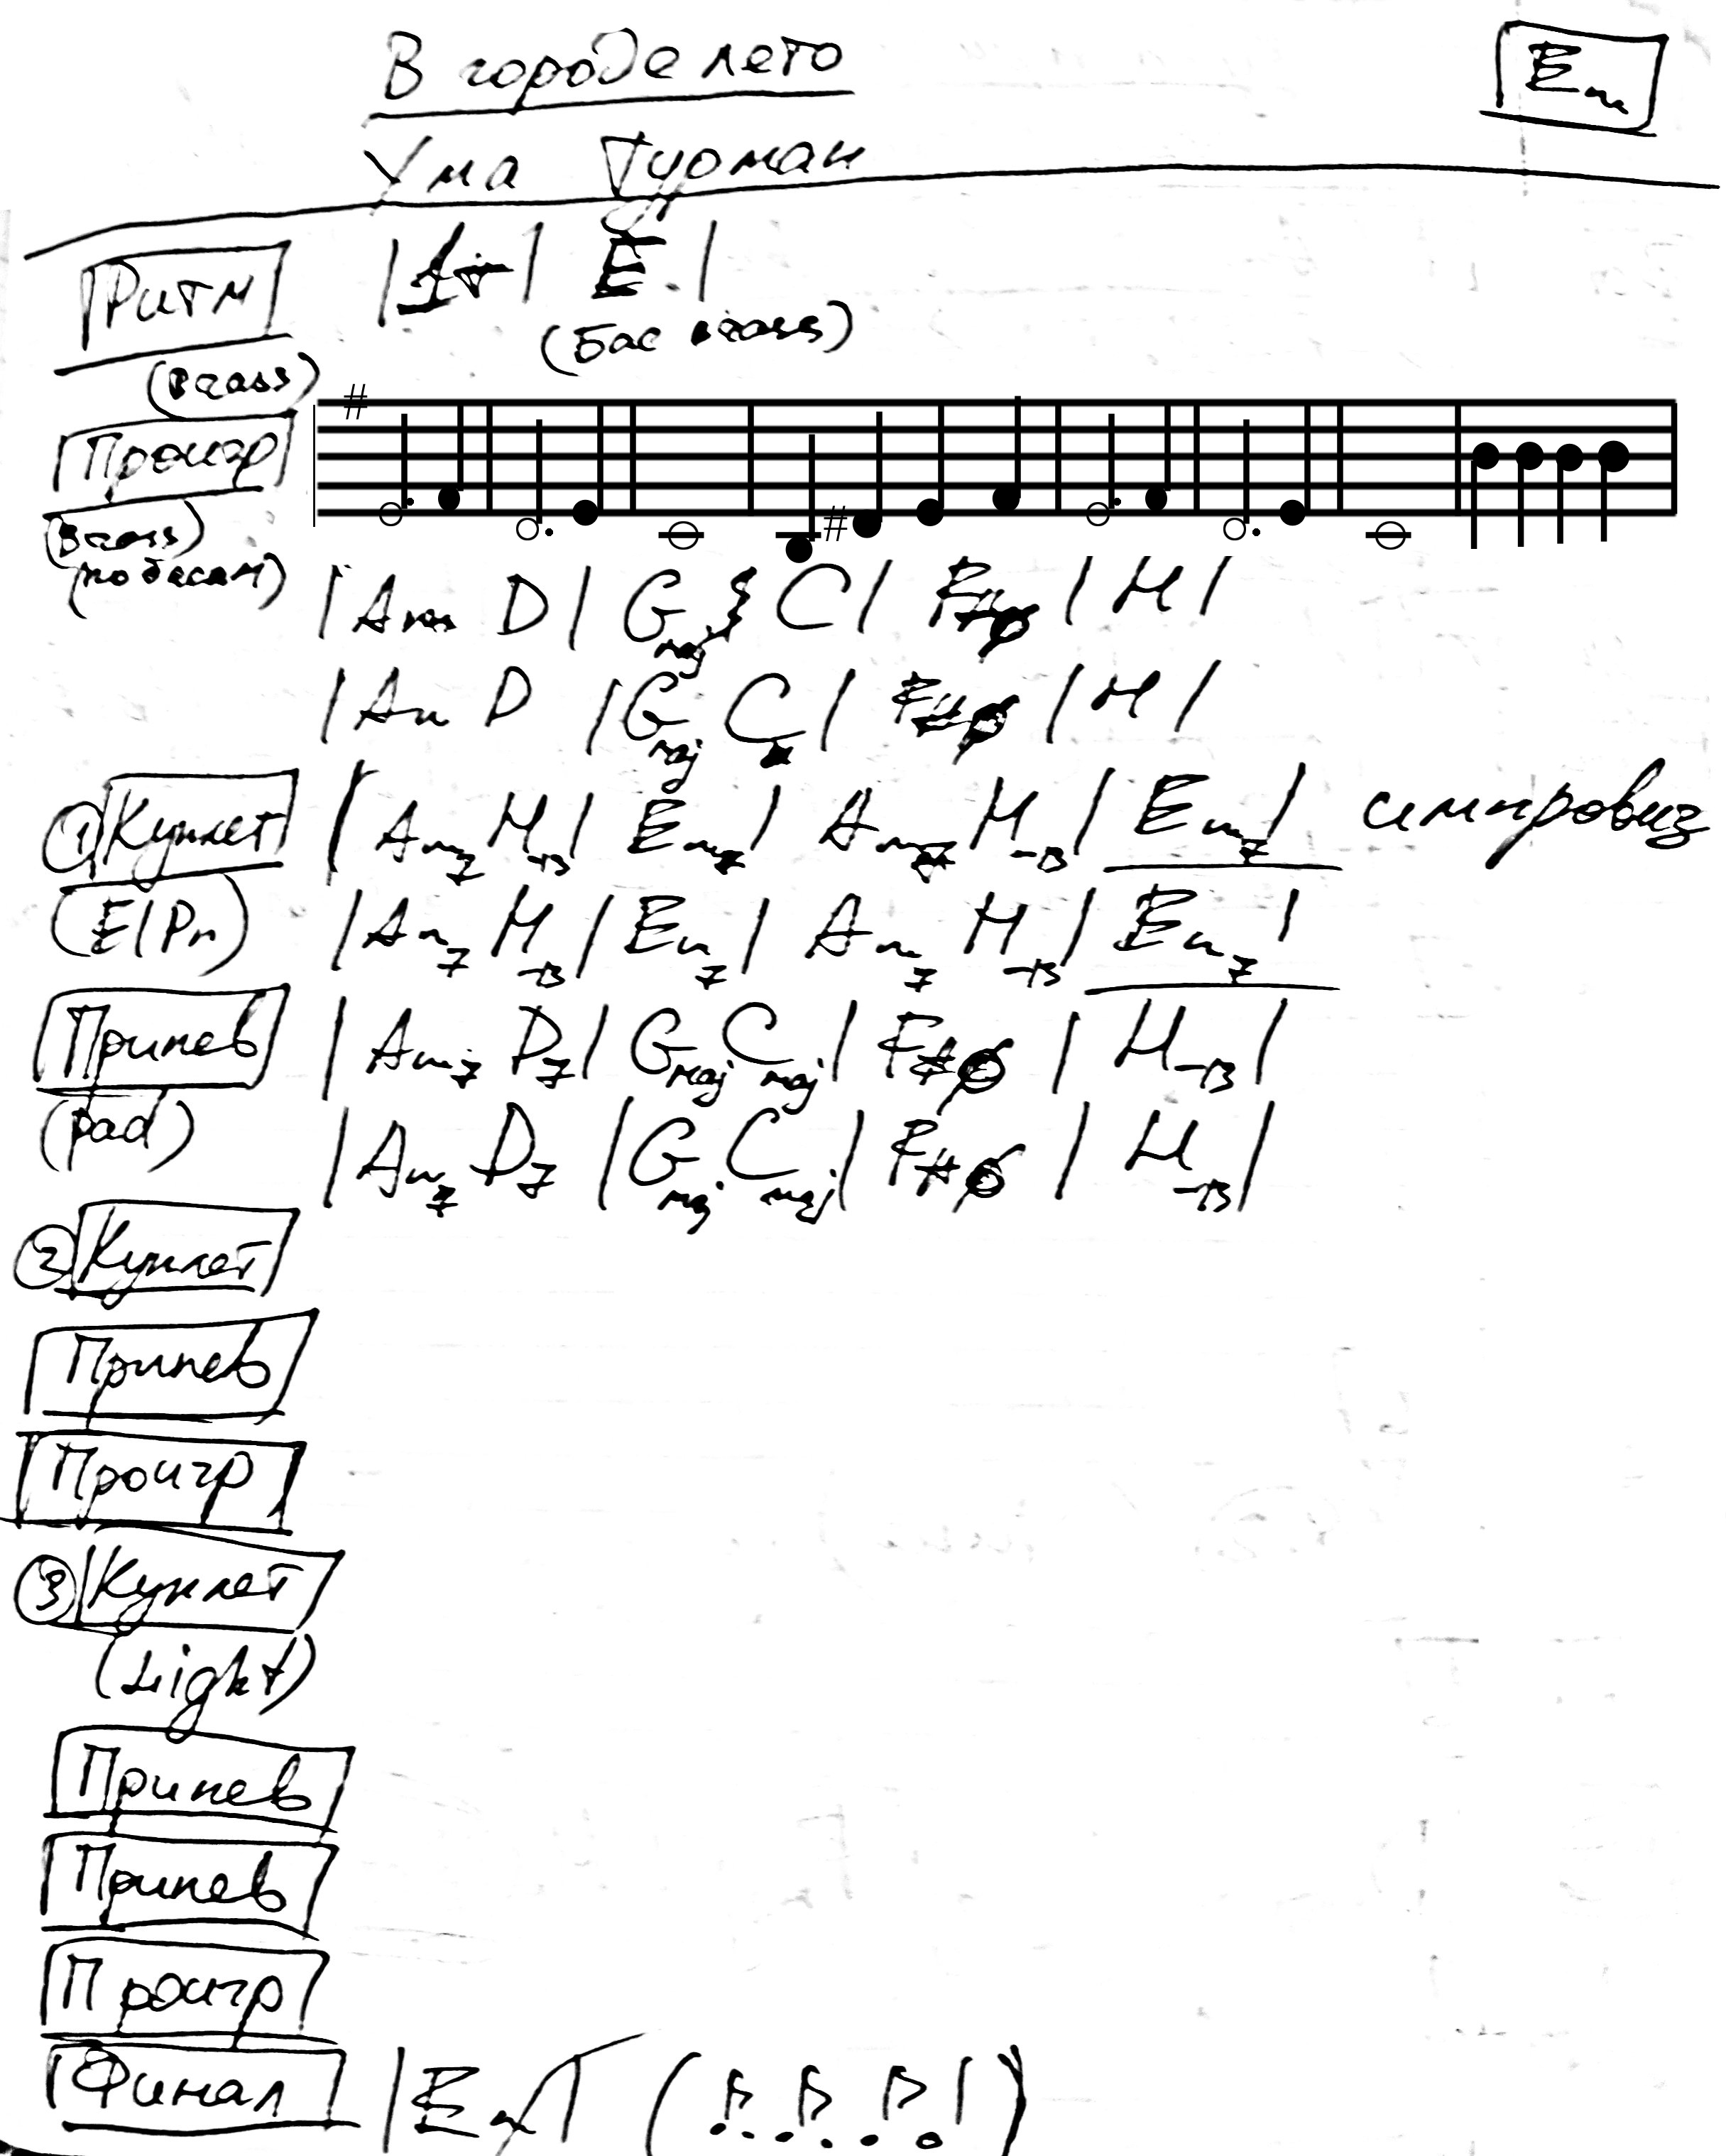 В городе лето
Em
Ума Турман
Ритм | 1т | E. |
(Бас brass)
(Brass)
Проигр
(Brass)
(по басам)
| Am D | Gmaj C | F#ø | H |
| Am D | Gmaj C | F#ø | H |
① Куплет | Am7 H-13 | Em7 | Am7 H-13 | Em7 | импровиз
(ElPn) | Am7 H-13 | Em7 | Am7 H-13 | Em7 |
Припев | Am7 D7 | Gmaj Cmaj | F#ø | H-13 |
(pad) | Am7 D7 | Gmaj Cmaj | F#ø | H-13 |
② Куплет
Припев
Проигр
③ Куплет
(Light)
Припев
Припев
Проигр
Финал | Em